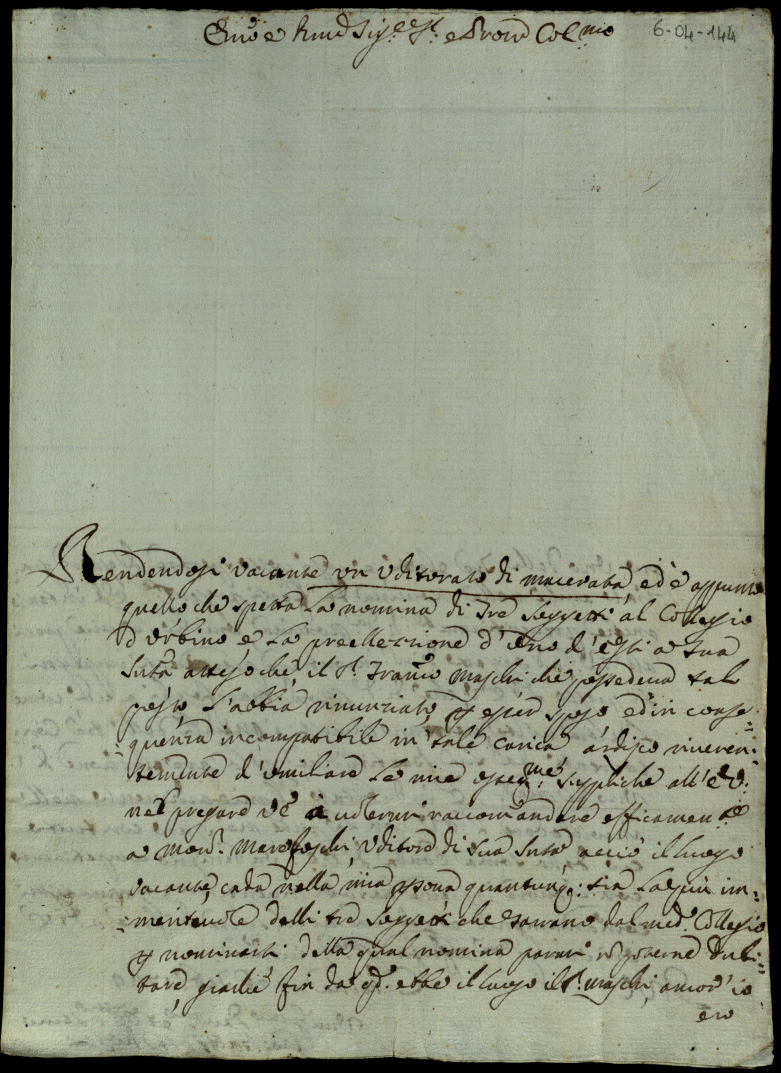 6-04-144
Emõ e Rmõ Sig.e Sr. e Prone Colmo
Rendendosi vacante un Uditorato di Macerata, ed è appunto
quello che spetta la nomina di tre Soggetti al Collegio
d'Urbino e la preelezzione d'uno d'essi a Sua
Sntà atteso che il Sr. Franco Maschi che possedeva tal
posto l'abbia rinunziato per esser sposo ed in conse=
=quenza incompatibile in tale carica ardisco riveren
temente d'umiliare le mie osseqme suppliche all'E.V.
nel pregare V.E. a volermi raccomandare efficamente
a Monr. Marefoschi Uditore di Sua Sntà acciò il luogo
vacante cada nella mia persona quantunq: sia la più im=
=meritevole delli tre Soggetti che saranno dal med.o Collegio
nominati della qual nomina parmi di poterne dubi=
tare, giache fin da qdo. ebbe il luogo il Sr. Maschi ancor io
ero